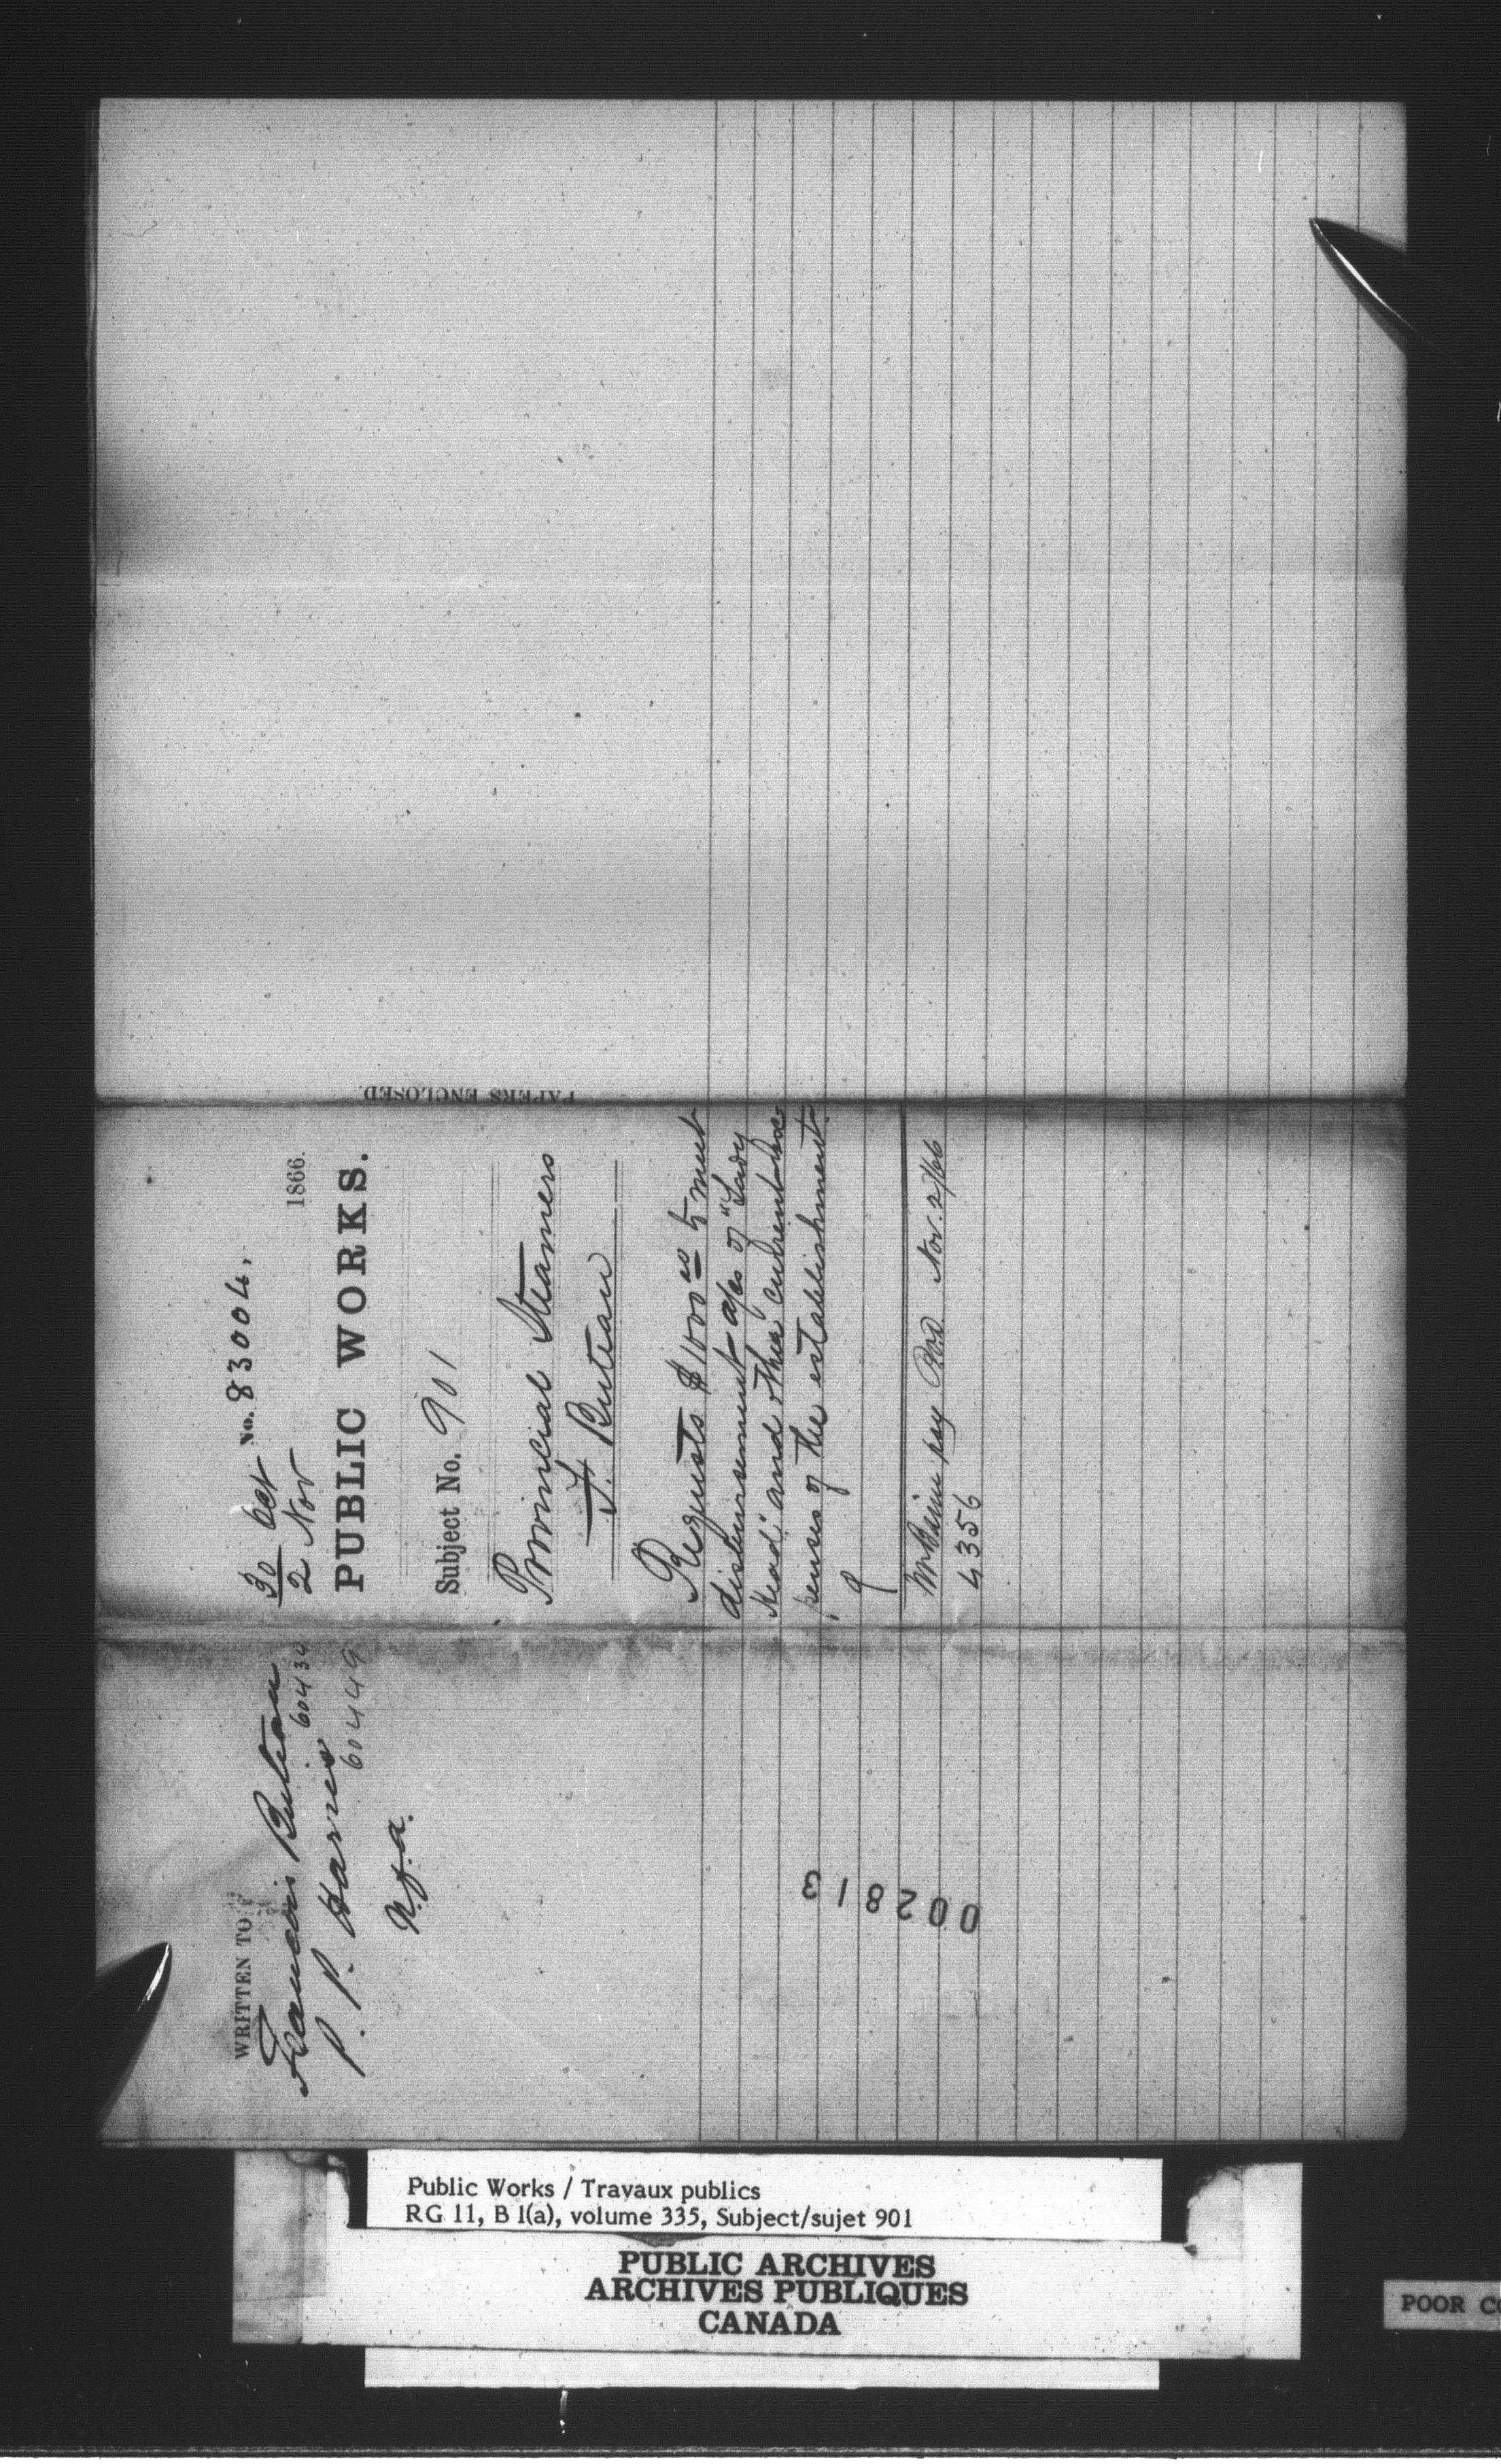 30 Oct No. 83004.
2 Nov 1866.
PUBLIC WORKS.
Subject No. 901
Provincial Steamers
F. Buteau
Requests $1000 00 to meet
disbursement a/cs of "Lady
Head" and other current ex
penses of the establishment.
pay Nov. 2/66
4356
PAPERS ENCLOSED
WRITTEN TO
Francois Buteau
60434
P. P. Harris
60449
N.f.a.
002813
Public Works / Travaux publics
RG 11, B 1(a), volume 335, Subject/sujet 901
PUBLIC ARCHIVES
ARCHIVES PUBLIQUES
CANADA
POOR CO